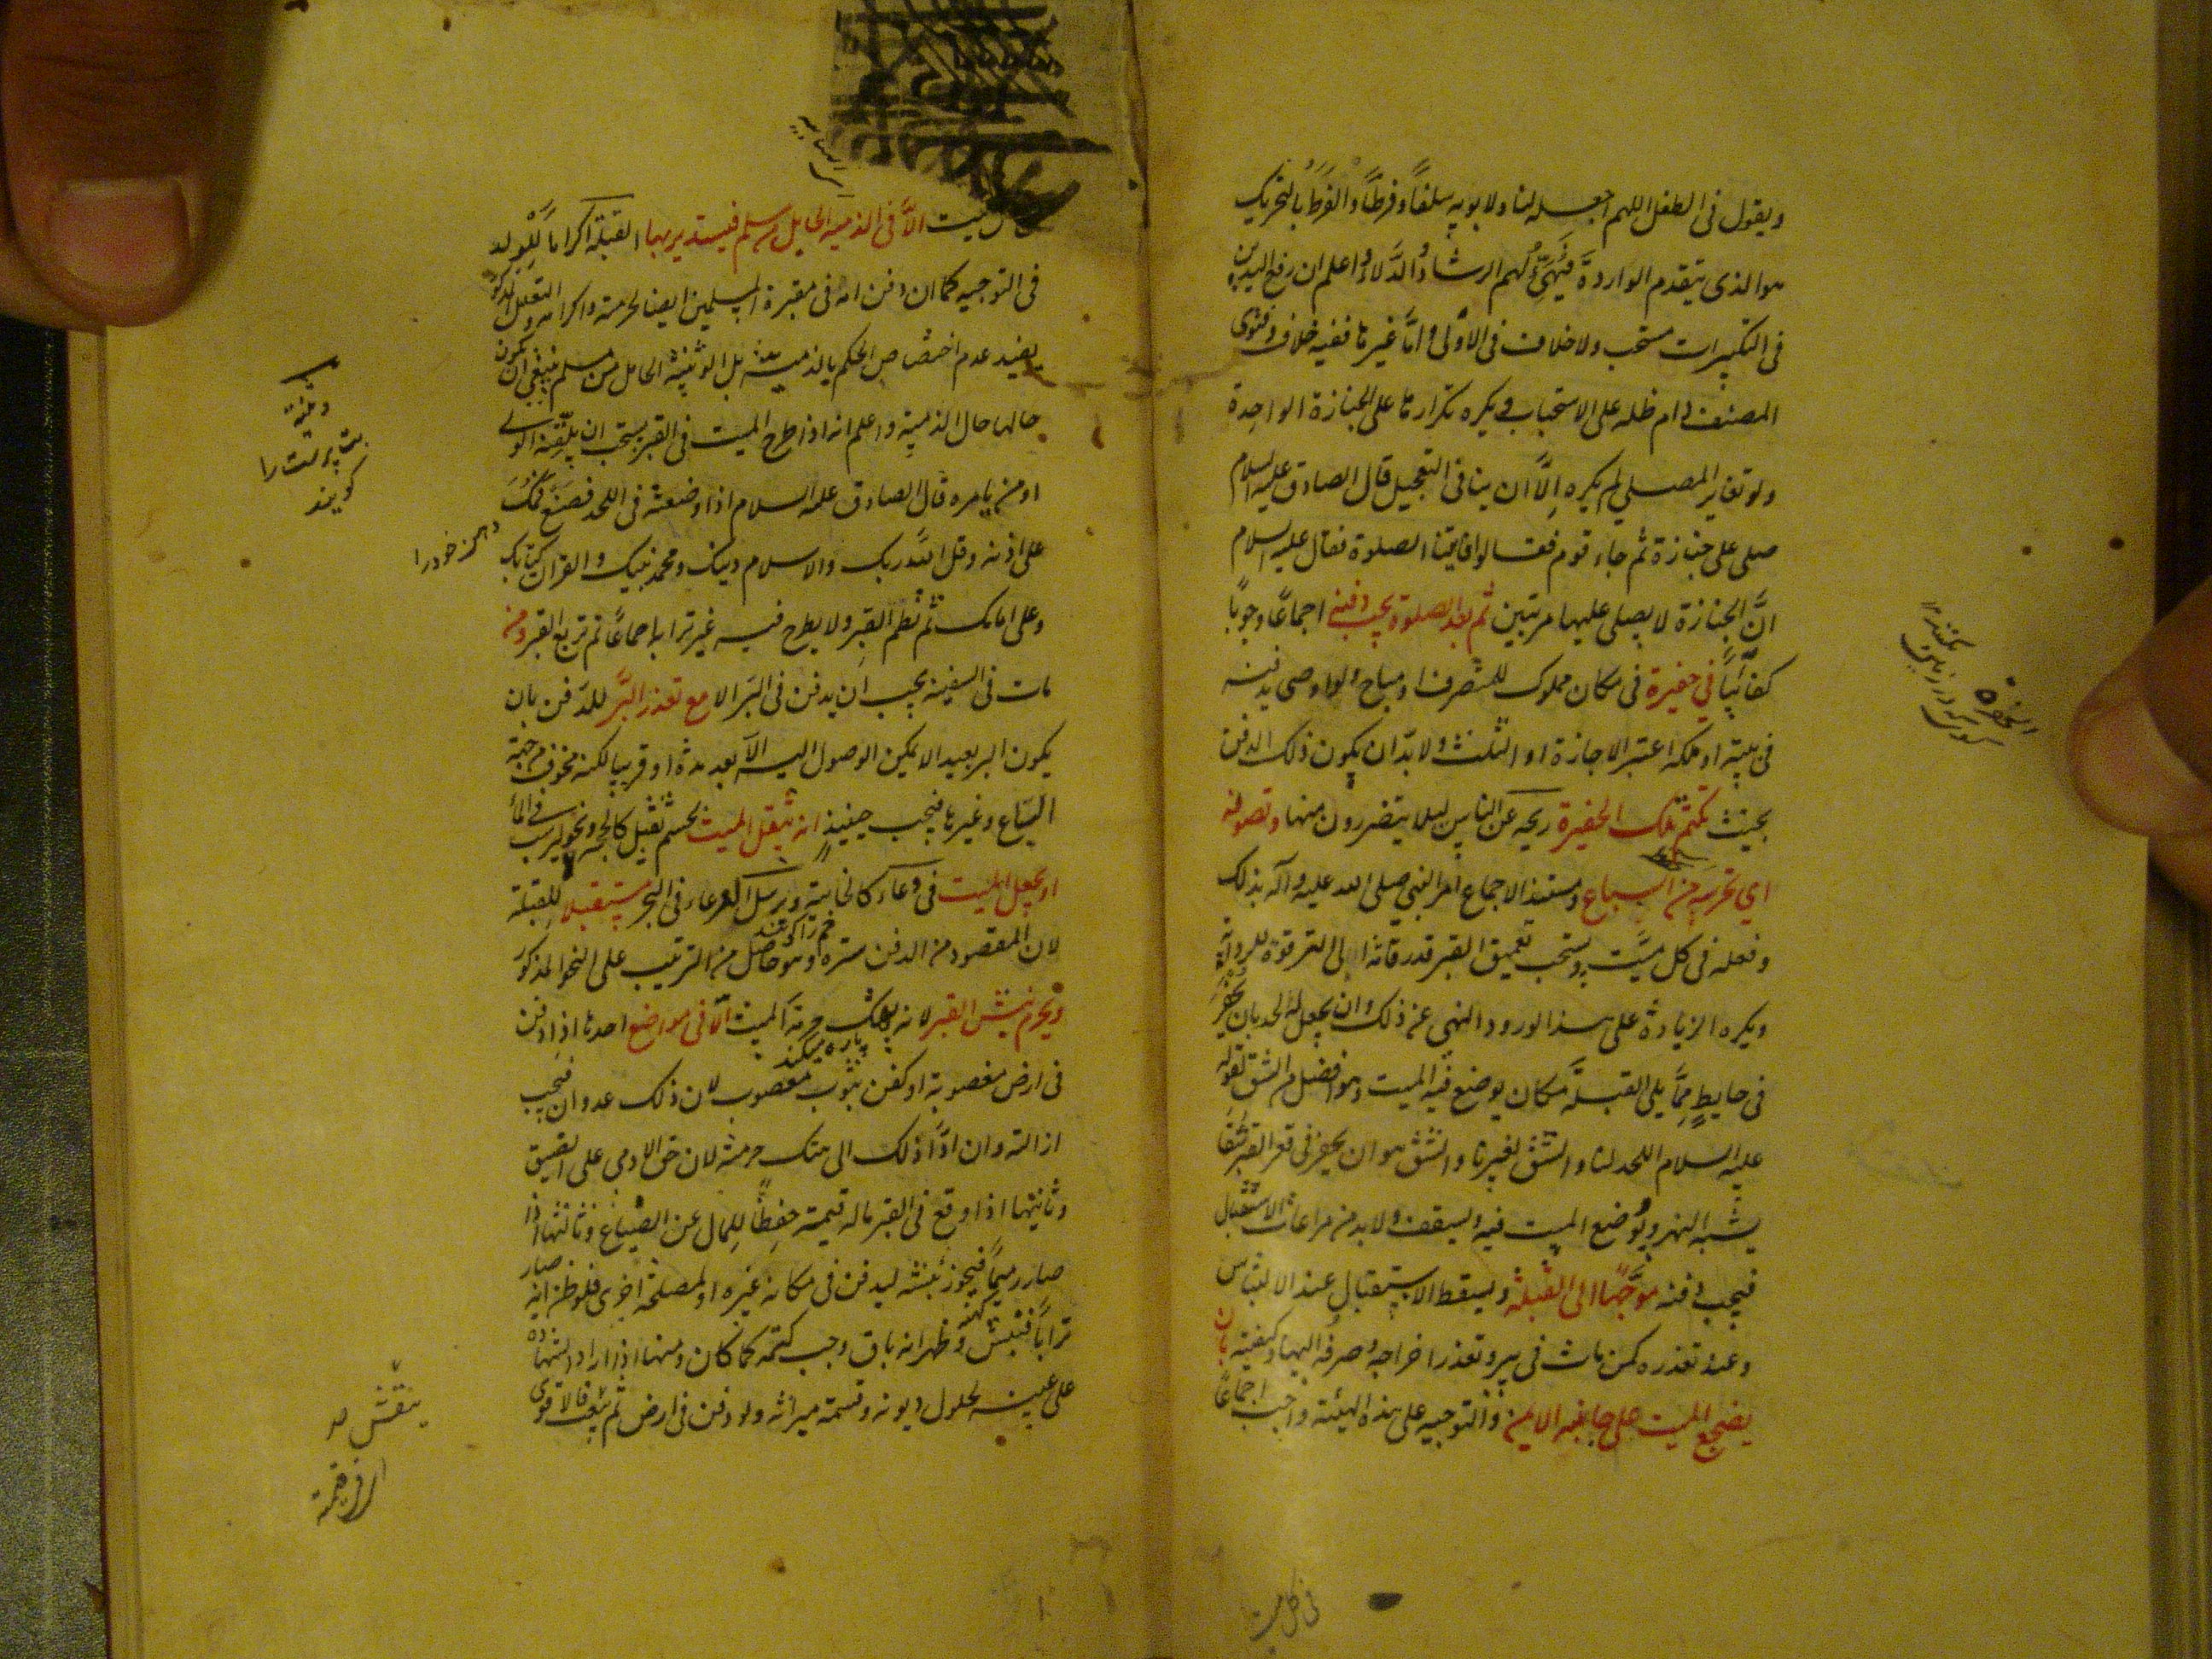 ويقول فى الطفل اللهم اجعله لنا ولابويه سلفاً وفرطاً والفَرَطُ بالتحريك
هو الذى يتقدم الواردة فيُهيّئ لهم الرشاء والدلاء واعلم ان رفع اليدين
فى التكبيرات مستحب ولا خلاف فى الاولى وامّا غيرها ففيه خلاف وفتوى
المصنف دام ظله على الاستحباب ويكره تكرارها على الجنازة الواحدة
ولو تغاير المصلى لم يكره اِلّا ان ينافى التعجيل قال الصادق عليه السلام
صلى على جنازة ثم جاء قوم فقالوا فاتتنا الصلوة فقال عليه السلام
انّ الجنازة لا يصلى عليها مرتين ثم بعد الصلوة يجب دفنه اجماعًا وجوبًا
كفائيًا في حفيرة فى مكان مملوك للمتصرف او مباح ولو اوصى بدفنه
فى بيته او ملكه اعتبر الاجازة او الثلث ولا بدّ ان يكون ذلك الدفن
بحيث تكتم تلك الحفيرة ريحه عن الناس ليلا يتضررون منها وتصونه
اي تحرسه من السباع ومستنده الاجماع امر النبي صلى الله عليه وآله بذلك
وفعله فى كل ميّت ويستحب تعميق القبر قدر قامة او الى الترقوة للرواية
ويكره الزيادة على هذا لورود النهى عن ذلك وان يجعل له لحد بان يحفر
فى حايطٍ مِمّا يلى القبلة مكان يوضع فيه الميت وهو افضل من الشق لقوله
عليه السلام اللحد لنا والشق لغيرنا والشق هو ان يحفر فى قعر القبر شقا
يشبه النهر ويُوضع الميت فيه ويسقف ولا بد من مراعات الاستقبال
فيجب دفنه موَجّهًا الى القبلة ويسقط الاستقبال عند الالتباس
وعند تعذره كمن مات فى بير وتعذر اخراجه وصرفه اليها وكيفيته بان
يضجع الميت على جانبه الايمن والتوجيه على هذه الهيئة واجب اجماعًا
الحفره
فى كل ميت
ميت الّا فى الذمية الحامل من مسلم فيستدبر بها القبلة اكراما لِلْولد
فى التوجيه كما ان دفن امه فى مقبرة المسلمين ايضا لحرمته واكرامه والتعليل المذكور
يفيد عدم اختصاص الحكم بالذمية بل الوثنية الحامل من مسلم ينبغى ان يكون
حالها حال الذمية واعلم انه اذا طرح الميت فى القبر يستحب ان يلقّنه الولى
او من يامره قال الصادق عليه السلام اذا وضعته فى اللحد فضع فمك
على اذنه وقل الله ربك والاسلام دينك ومحمد نبيك والقرآن كتابك
وعلى امامك ثم تطم القبر ولا يطرح فيه غير ترابه اجماعًا ثم تربع القبر ومن
مات فى السفينة يجب ان يدفن فى البَر الا مع تعذر البَّر للدّفن بان
يكون البر بعيد الا يمكن الوصول اليه الّا بعد مدة او قريبا لكنه مخوف من جهة
السّباع وغيرها فيجب حينئذٍ ان يثقل الميت بجسم ثقيل كالحجر ونحوه ليرسب فى الماء
او يجعل الميت فى وعاء كالخابية ويرسل الوعاء فى البحر مستقبلا لِلقبلة
خم را گويند
لان المقصود من الدفن ستره وهو حاصل من الترتيب على النحو المذكور
ويحرم نبش القبر لانه يهتك حرمة الميت الّا فى مواضع احدها اذا دفن
پاره ميكند
فى ارض مغصوبة او كفن بثوب مغصوب لان ذلك عدوان فيجب
ازالته وان ادّا ذلك الى هتك حرمته لان حق الادمى على الضيق
وثانيتها اذا وقع فى القبر ماله قيمة حفظًا للمال عن الضياع وثالثتها اذا
صار رميمًا فيجوز نبشه ليدفن فى مكانه غيره او لمصلحة اخرى فلو ظن انه صار
كهنه
ترابًا فنبش وظهر انه باق وجب كتمه كما كان ومنها اذا اراد الشهادة
على عينه لحلول ديونه وقسمة ميراثه ولو دفن فى ارض ثم بيعت فالاقوى
وثنية
بت پرست را
گويند
دهن خود را